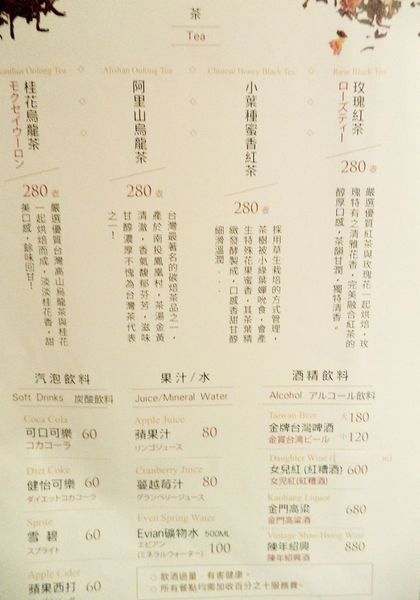 茶
Tea
Osmanthus Oolong Tea
桂花烏龍茶
モクセイウーロン
280 壺
嚴選優質台灣高山烏龍茶與桂花
一起烘焙而成，淡淡桂花香，甜
美口感，餘味回甘！
Alishan Oolong Tea
阿里山烏龍茶
280 壺
台灣最著名的碳焙茶品之一，
產於南投鳳凰村，茶湯金黃
清澈，香氣馥郁芬芳，滋味
甘醇濃厚不愧為台灣茶代表
之一！
Chinese Honey Black Tea
小葉種蜜香紅茶
280 壺
採用草生栽培的方式管理，
茶樹被小綠葉蟬吮食，會產
生特殊花果蜜香，其茶葉精
緻發酵製成，口感香甜甘醇
細滑溫潤...
Rose Black Tea
玫瑰紅茶
ローズティー
280 壺
嚴選優質紅茶與玫瑰花一起烘焙，玫
瑰特有之清雅花香，完美融合紅茶的
醇厚口感，茶韻甘潤，獨特清香。
汽泡飲料
Soft Drinks 炭酸飲料
Coca Cola
可口可樂 60
コカコーラ
Diet Coke
健怡可樂 60
ダイエットコカコーラ
Sprite
雪 碧 60
スプライト
Apple Cider
蘋果西打 60
果汁/水
Juice/Mineral Water
Apple Juice
蘋果汁 80
リンゴジュース
Cranberry Juice
蔓越莓汁 80
グランベリージュース
Even Spring Water
Evian礦物水 500ML
エビアン
(ミネラルウォーター) 100
酒精飲料
Alcohol アルコール飲料
Taiwan Beer
金牌台灣啤酒 大 180
金賞台湾ビール 小 120
Daughter Wine
女兒紅 (紅糟酒) 600
女兒紅(紅糟酒)
Kaoliang Liquor
金門高粱 680
金門高粱酒
Vintage Shao Hsing Wine
陳年紹興 880
陳年紹興酒
○ 飲酒過量，有害健康。
○ 所有餐點均需加收百分之十服務費。